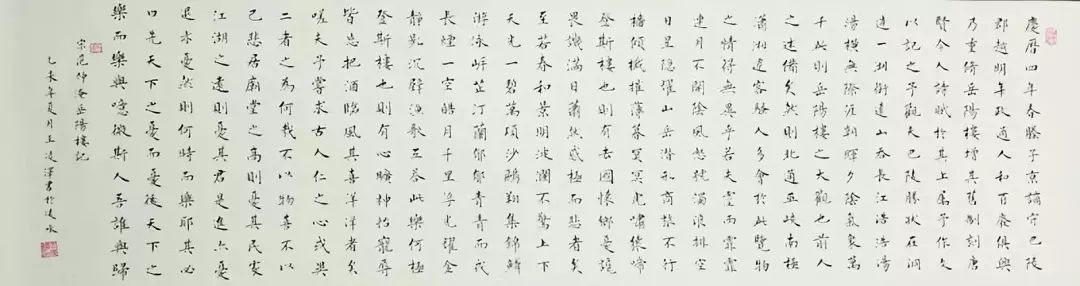 慶曆四年春滕子京謫守巴陵
郡越明年政通人和百廢俱興
乃重脩岳陽樓增其舊制刻唐
賢今人詩賦於其上屬予作文
以記之予觀夫巴陵勝狀在洞
庭一湖銜遠山吞長江浩浩湯
湯橫無際涯朝暉夕陰氣象萬
千此則岳陽樓之大觀也前人
之述備矣然則北通巫峽南極
瀟湘遷客騷人多會於此覽物
之情得無異乎若夫霪雨霏霏
連月不開陰風怒號濁浪排空
日星隱耀山岳潛形商旅不行
檣傾楫摧薄暮冥冥虎嘯猿啼
登斯樓也則有去國懷鄉憂讒
畏譏滿目蕭然感極而悲者矣
至若春和景明波瀾不驚上下
天光一碧萬頃沙鷗翔集錦鱗
游泳岸芷汀蘭郁郁青青而或
長煙一空皓月千里浮光耀金
靜影沉璧漁歌互答此樂何極
登斯樓也則有心曠神怡寵辱
皆忘把酒臨風其喜洋洋者矣
嗟夫予嘗求古人仁之心或異
二者之為何哉不以物喜不以
己悲居廟堂之高則憂其民處
江湖之遠則憂其君是進亦憂
退亦憂然則何時而樂耶其必
曰先天下之憂而憂後天下之
樂而樂與噫微斯人吾誰與歸
宋范仲淹岳陽樓記
乙未年夏月王凌澤書於